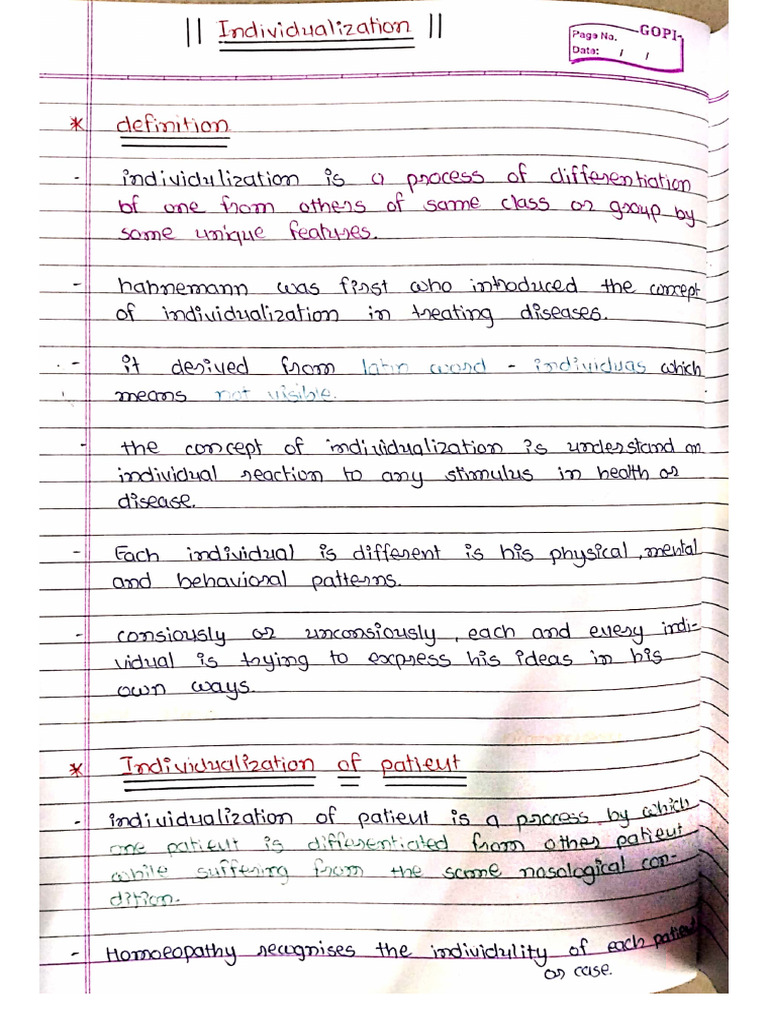 || Individualization ||
GOPI
Page No.
Date: / /
* definition
- individulization is a process of differentiation
of one from others of same class or group by
some unique features.
- hahnemann was first who introduced the concept
of individualization in treating diseases.
- it derived from latin word - individuas which
means not visible.
- the concept of individualization is understand on
individual reaction to any stimulus in health or
disease.
- Each individual is different is his physical, mental
and behavioral patterns.
- consiously or unconsiously, each and every indi-
vidual is trying to express his ideas in his
own ways.
* Individualization of patient
- individualization of patient is a process by which
one patient is differentiated from other patient
while suffering from the same nosological con-
dition.
- Homoeopathy recognises the individulity of each patient
or case.